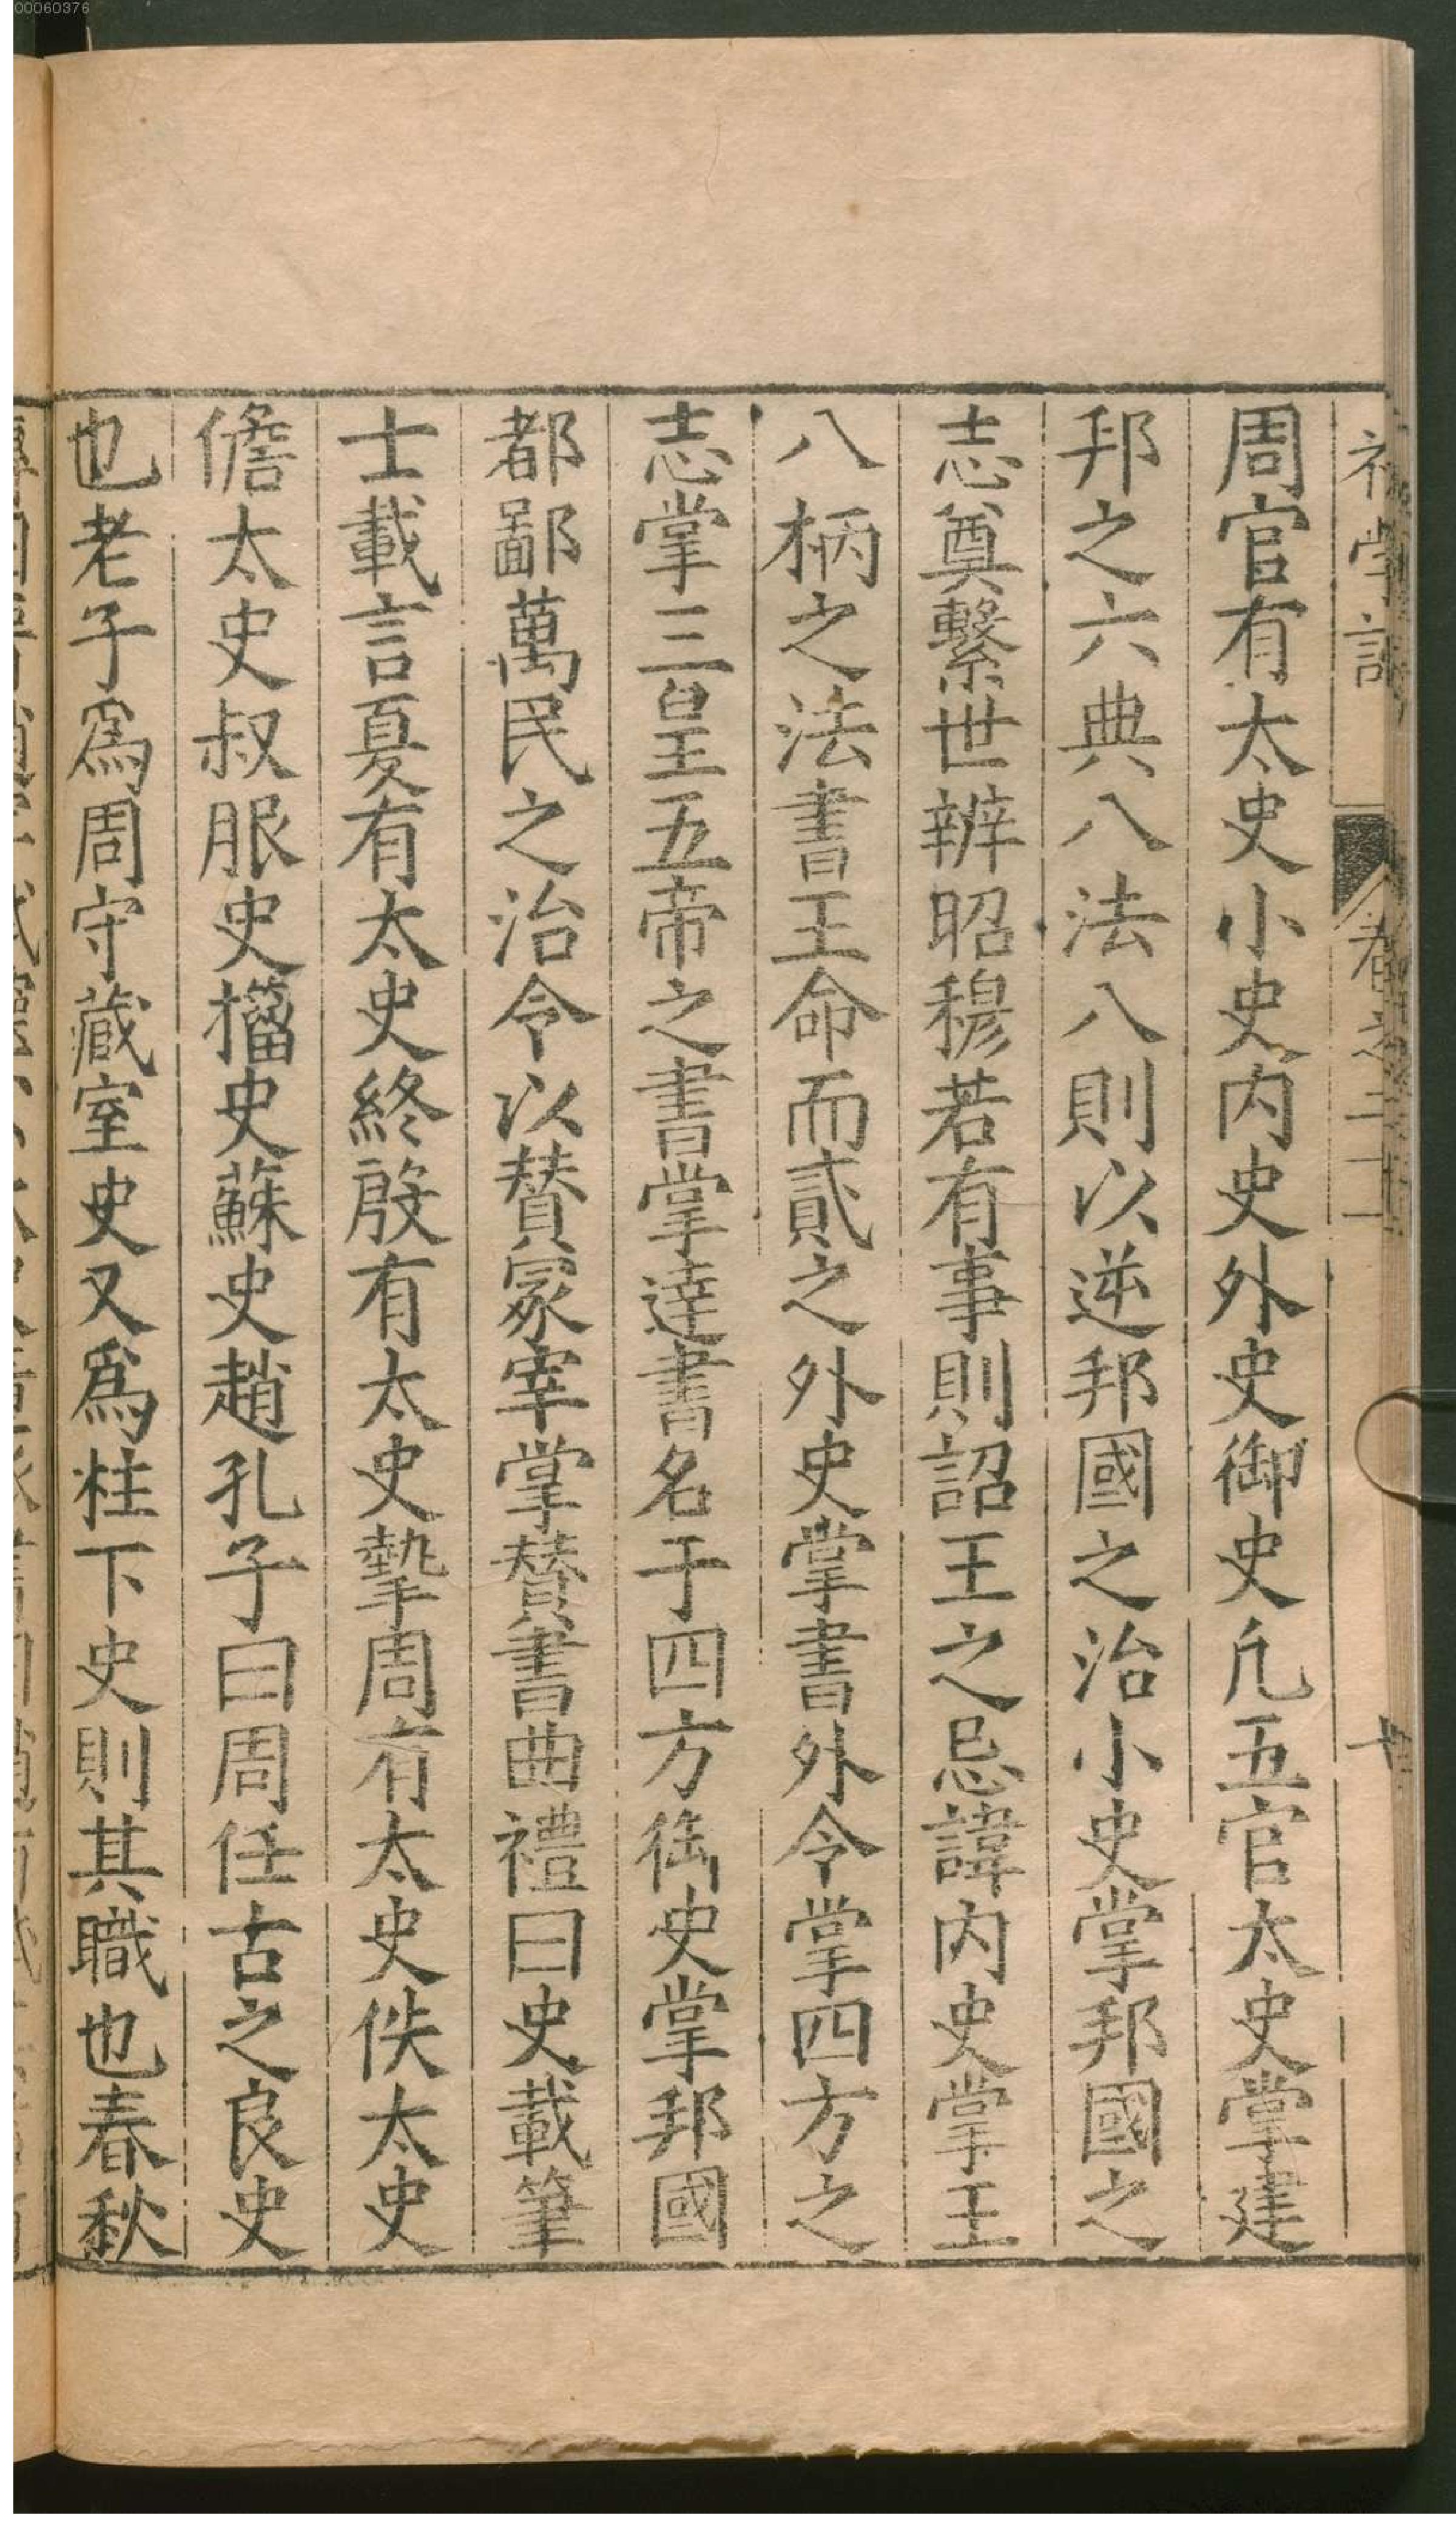 00060376
初學記 卷之二十一 十
周官有太史小史内史外史御史凡五官太史掌建
邦之六典八法八則以逆邦國之治小史掌邦國之
志奠繫世辨昭穆若有事則詔王之忌諱内史掌王
八柄之法書王命而貳之外史掌書外令掌四方之
志掌三皇五帝之書掌達書名于四方御史掌邦國
都鄙萬民之治令以賛冢宰掌賛書曲禮曰史載筆
士載言夏有太史終殷有太史摯周有太史佚太史
儋太史叔服史㩅史蘇史趙孔子曰周任古之良史
也老子爲周守藏室史又爲柱下史則其職也春秋